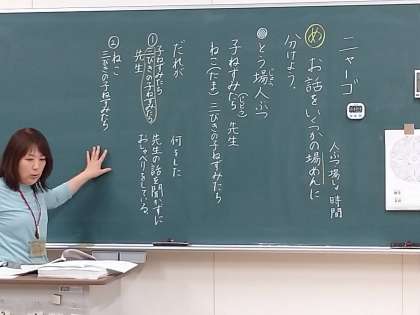 ニャーゴ
人ぶつ 場しょ 時間
め お話をいくつかの場めんに
分けよう。
とう場人ぶつ
子ねずみたち 先生
ねこ(たま) 三びきの子ねずみたち
だれが 何をした
① 子ねずみたち 先生の話を聞かずに
三びきの子ねずみたち おしゃべりをしている。
先生
② ねこ
三びきの子ねずみたち